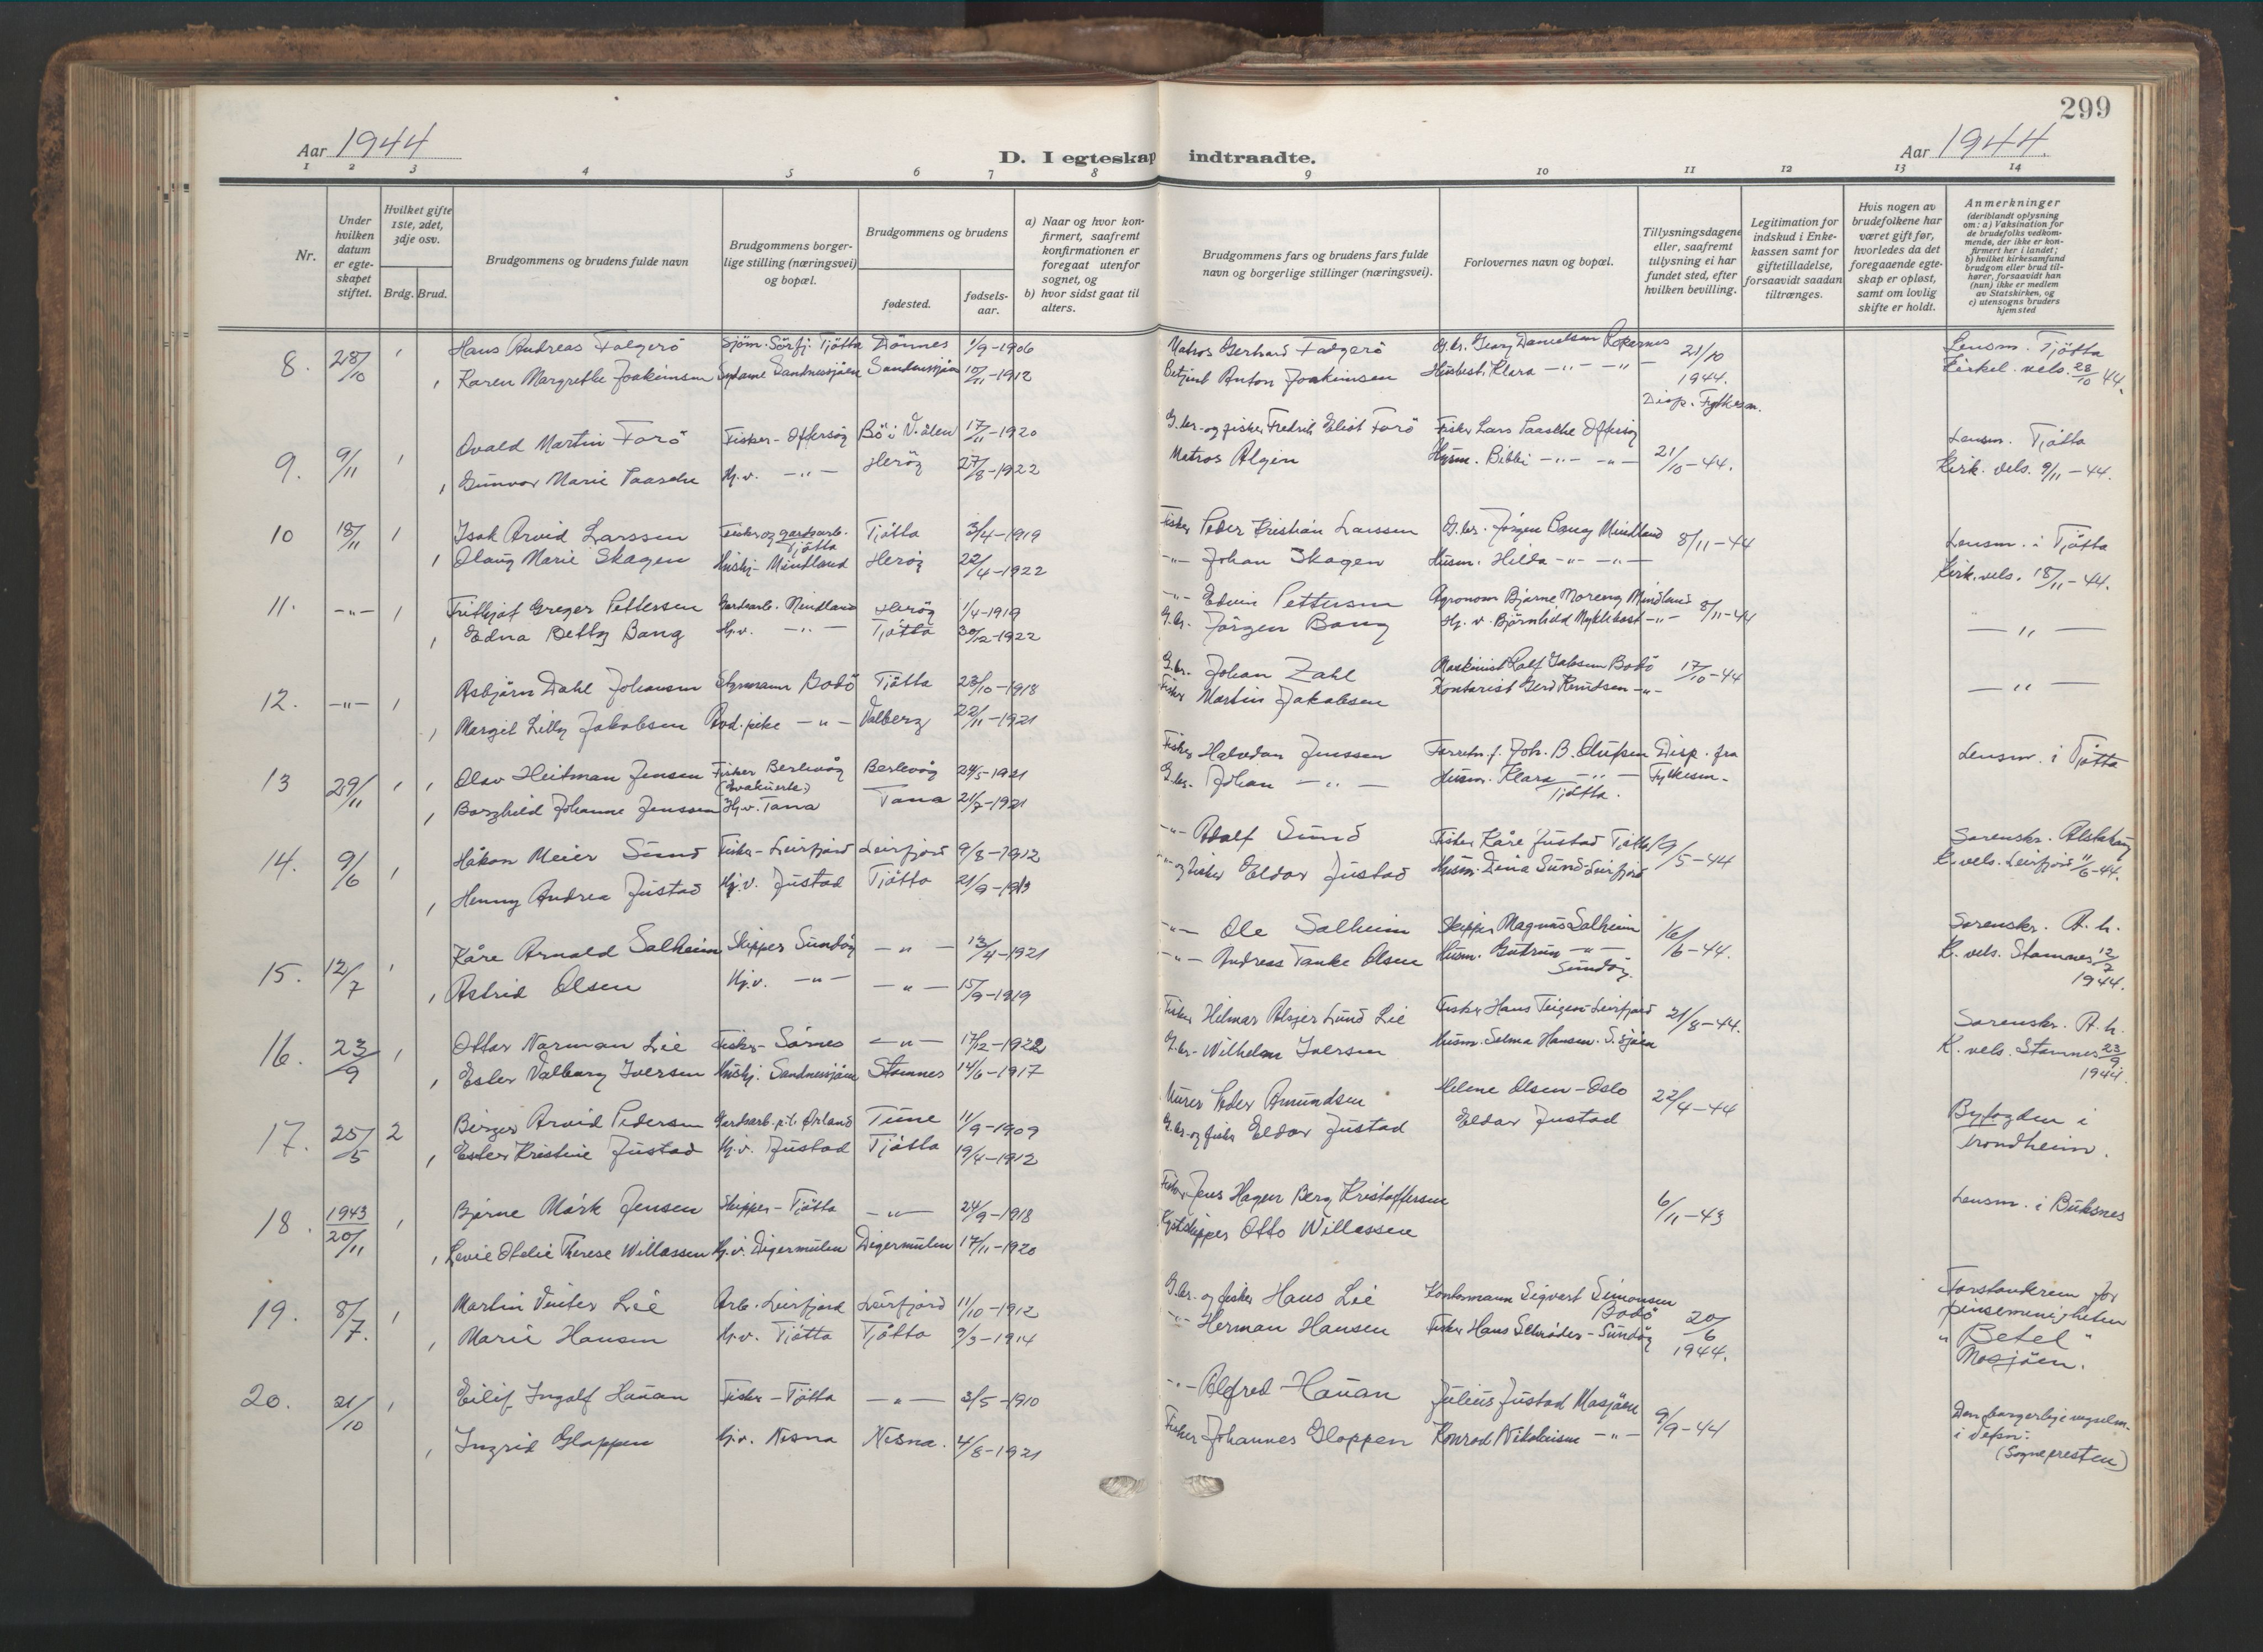 299
Aar 1944
D. I egteskap indtraadte.
Aar 1944
1 2 3 4 5 6 7 8 9 10 11 12 13 14
Nr.
Under hvilken datum er egteskapet stiftet.
Hvilket gifte 1ste, 2det, 3dje osv.
Brdg. Brud.
Brudgommens og brudens fulde navn
Brudgommens borgerlige stilling (næringsvei) og bopæl.
Brudgommens og brudens
fødested.
fødselsaar.
a) Naar og hvor konfirmert, saafremt konfirmationen er foregaat utenfor sognet, og
b) hvor sidst gaat til alters.
Brudgommens fars og brudens fars fulde navn og borgerlige stillinger (næringsvei).
Forlovernes navn og bopæl.
Tillysningsdagene eller, saafremt tillysning ei har fundet sted, efter hvilken bevilling.
Legitimation for indskud i Enkekassen samt for giftetilladelse, forsaavidt saadan tiltrænges.
Hvis nogen av brudefolkene har været gift før, hvorledes da det foregaaende egteskap er opløst, samt om lovlig skifte er holdt.
Anmerkninger (deriblandt oplysning om: a) Vaksination for de brudefolks vedkommende, der ikke er konfirmert her i landet; b) hvilket kirkesamfund brudgom eller brud tilhører, forsaavidt han (hun) ikke er medlem av Statskirken, og c) utensogns bruders hjemsted
8. 28/10 1 Hans Andreas Falgerö Sjöm. Sörfj. Tjötta Dönnes 1/9-1906 Matros Gerhard Falgerö G.br. Georg Danielsen Rokesnes 21/10 Lensm. Tjötta
1 Karen Margrethe Joakimsen Sydame Sandnessjöen Sandnessjöen 10/11-1912 Betjent Anton Joakimsen Husbest. Klara -"- -"- 1944. Kirkel. vels. 28/10 44.
Disp. Fylkesm.
9. 9/11 1 Ovald Martin Farö Fisker - Offersöy Bö i V.ålen 17/11-1920 G.br. og fisker Fredrik Eliot Farö Fisker Lars Paasche Offersöy Lensm. Tjötta
1 Gunvor Marie Paasche Hj.v. -"- Heröy 27/8-1922 Matros Algin Husm. Bibbi -"- -"- 21/10-44. Kirk. vels. 9/11-44.
10 18/11 1 Isak Arvid Larssen Fisker og gardsarb. Tjötta Tjötta 3/4-1919 Fisker Peder Kristian Larssen G.br. Jörgen Bang Mindland 8/11-44 Lensm. i Tjötta
1 Olaug Marie Skagen Hushj. Mindland Heröy 22/4-1922 -"- Johan Skagen Husm. Hilda -"- -"- Kirk. vels. 18/11-44.
11. -"- 1 Fritjof Greger Pettersen Gardsarb. Mindland Heröy 1/4-1919 -"- Edvin Pettersen Agronom Bjarne Moreng Mindland 8/11-44
1 Edna Betty Bang Hj.v. -"- Tjötta 30/12-1922 G.br. Jörgen Bang Hj.v. Björnhild Myklebost -"- -"-
12. -"- 1 Asbjörn Dahl Johansen Styrmann Bodö Tjötta 23/10-1918 G.br. Johan Zahl Maskinist Rolf Jakobsen Bodö 17/10-44
1 Margit Lilly Jakobsen -"- Valberg 22/11-1921 Fisker Martin Jakobsen Kontorist Gerd Knudsen -"- -"-
13 29/11 1 1 Olav Heitman Jensen Fisker Berlevåg (Evakuerte) Berlevåg 24/5-1921 Fisker Halvdan Jenssen Forretn.f. Joh. B. Olufsen Disp. fra Lensm. i Tjötta
1 Borghild Johanne Jenssen Hj.v. Tana Tana 21/7-1921 G.br. Johan -"- Husm. Klara -"- Tjötta. Fylkesm.
14. 9/6 1 Håkon Meier Sund Fisker - Leirfjord Leirfjord 9/8-1912 -"- Adolf Sund Fisker Kåre Justad Tjötta 19/5-44 Sorenskr. Alstahaug
1 Henny Andrea Justad Hj.v. Justad Tjötta 21/9-1913 -"- og fisker Eldor Justad Husm. Dina Sund Leirfjord K. vels. Leirfjord 11/6-44.
15. 12/7 1 Kåre Arnold Salheim Skipper Sundöy -"- 13/4-1921 -"- Ole Salheim Skipper Magnus Salheim 16/6-44. Sorenskr. A.h.
1 Astrid Olsen Hj.v. -"- -"- 15/9-1919 -"- Andreas Tanke Olsen Husm. Gudrun -"- Sundöy. K. vels. Stamnes 12/7 1944.
16. 23/9 1 Ottar Norman Lie Fisker - Sörnes -"- 17/12-1922 Fisker Hilmar Alsjer Lund Lie Fisker Hans Teigen - Leirfjord 21/8-44. Sorenskr. A.h.
1 Ester Valborg Iversen Hushj. Sandnessjöen Stamnes 14/6-1917 G.br. Wilhelm Iversen Husm. Selma Hansen. S.sjöen K. vels. Stamnes 23/9 1944.
17. 25/5 2 Birger Arvid Pedersen Gardsarb. p.t. Örland Tune 11/9-1909 Murer Peder Amundsen Helene Olsen - Oslo 22/4-44 Byfogden i
1 Ester Kristine Justad Hj.v. Justad Tjötta 19/4-1912 G.br. og fisker Eldor Justad Eldor Justad Trondheim.
18. 1943 20/11 1 Bjarne Mörk Jensen Skipper - Tjötta -"- 24/9-1918 Fisker Jens Hagen Berg Kristoffersen 6/11-43 Lensm. i Buksnes
1 Levie Otelie Therese Willassen Hj.v. Digermulen Digermulen 17/11-1920 Otto Willassen
19. 8/7. 1 Martin Vinter Lie Arb. Leirfjord Leirfjord 11/10-1912 G.br. og fisker Hans Lie Kontormann Sigvart Simonsen Bodö 20/6 1944. Forstanderen for
1 Marie Hansen Hj.v. Tjötta Tjötta 9/3-1914 -"- Herman Hansen Fisker Hans Schröder - Sundöy pinsemenigheten "Betel" Mosjöen.
20. 21/10 1 Eilif Ingolf Hauan Fisker - Tjötta -"- 3/5-1910 -"- Alfred Hauan Julius Justad Mosjöen 9/9-44 Den borgerlige vigselm.
1 Ingrid Gloppen Hj.v. Nesna Nesna. 4/8-1921 Fisker Johannes Gloppen Konrad Nikolaisen -"- i Vefsn. (Sognepresten)